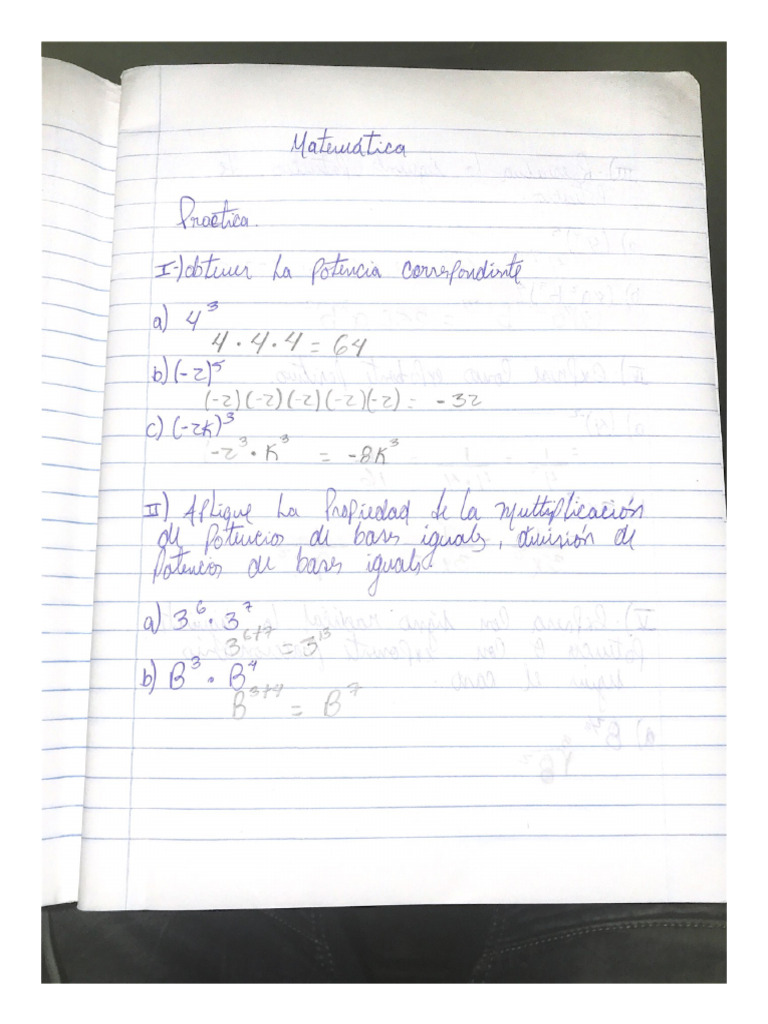 Matemática
Practica.
I-) obtener La Potencia correspondiente
a) 4³
4 · 4 · 4 = 64
b) (-2)⁵
(-2)(-2)(-2)(-2)(-2) = -32
c) (-2K)³
-2³ · K³ = -8K³
II) Aplique La Propiedad de La multiplicación
de Potencias de bases iguales, división de
Potencias de bases iguales
a) 3⁶ · 3⁷
3⁶⁺⁷ = 3¹³
b) B³ · B⁴
B³⁺⁴ = B⁷